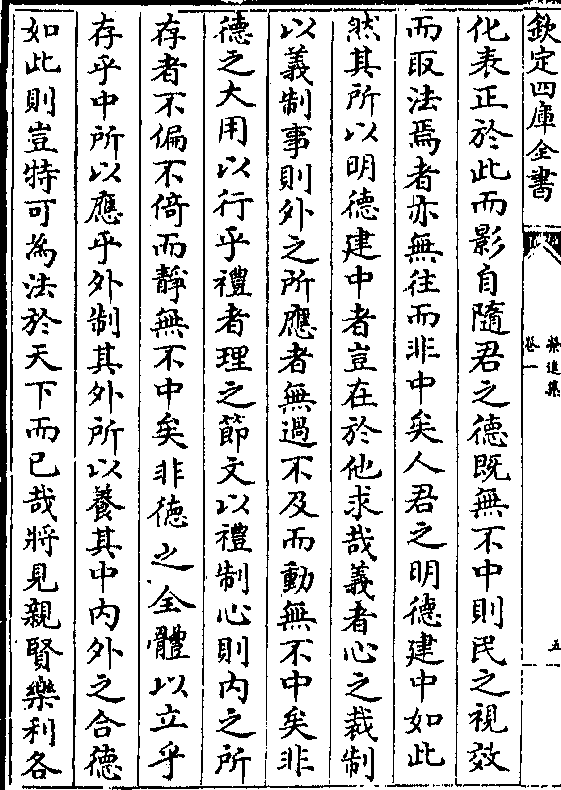 欽定四庫全書
卷一
五
化表正於此而影自隨君之德既無不中則民之視效
而取法焉者亦無往而非中矣人君之明德建中如此
然其所以明德建中者豈在於他求哉義者心之裁制
以義制事則外之所應者無過不及而動無不中矣非
德之大用以行乎禮者理之節文以禮制心則内之所
存者不偏不倚而靜無不中矣非德之全體以立乎
存乎中所以應乎外制其外所以養其中内外之合德
如此則豈特可為法於天下而已哉將見親賢樂利各